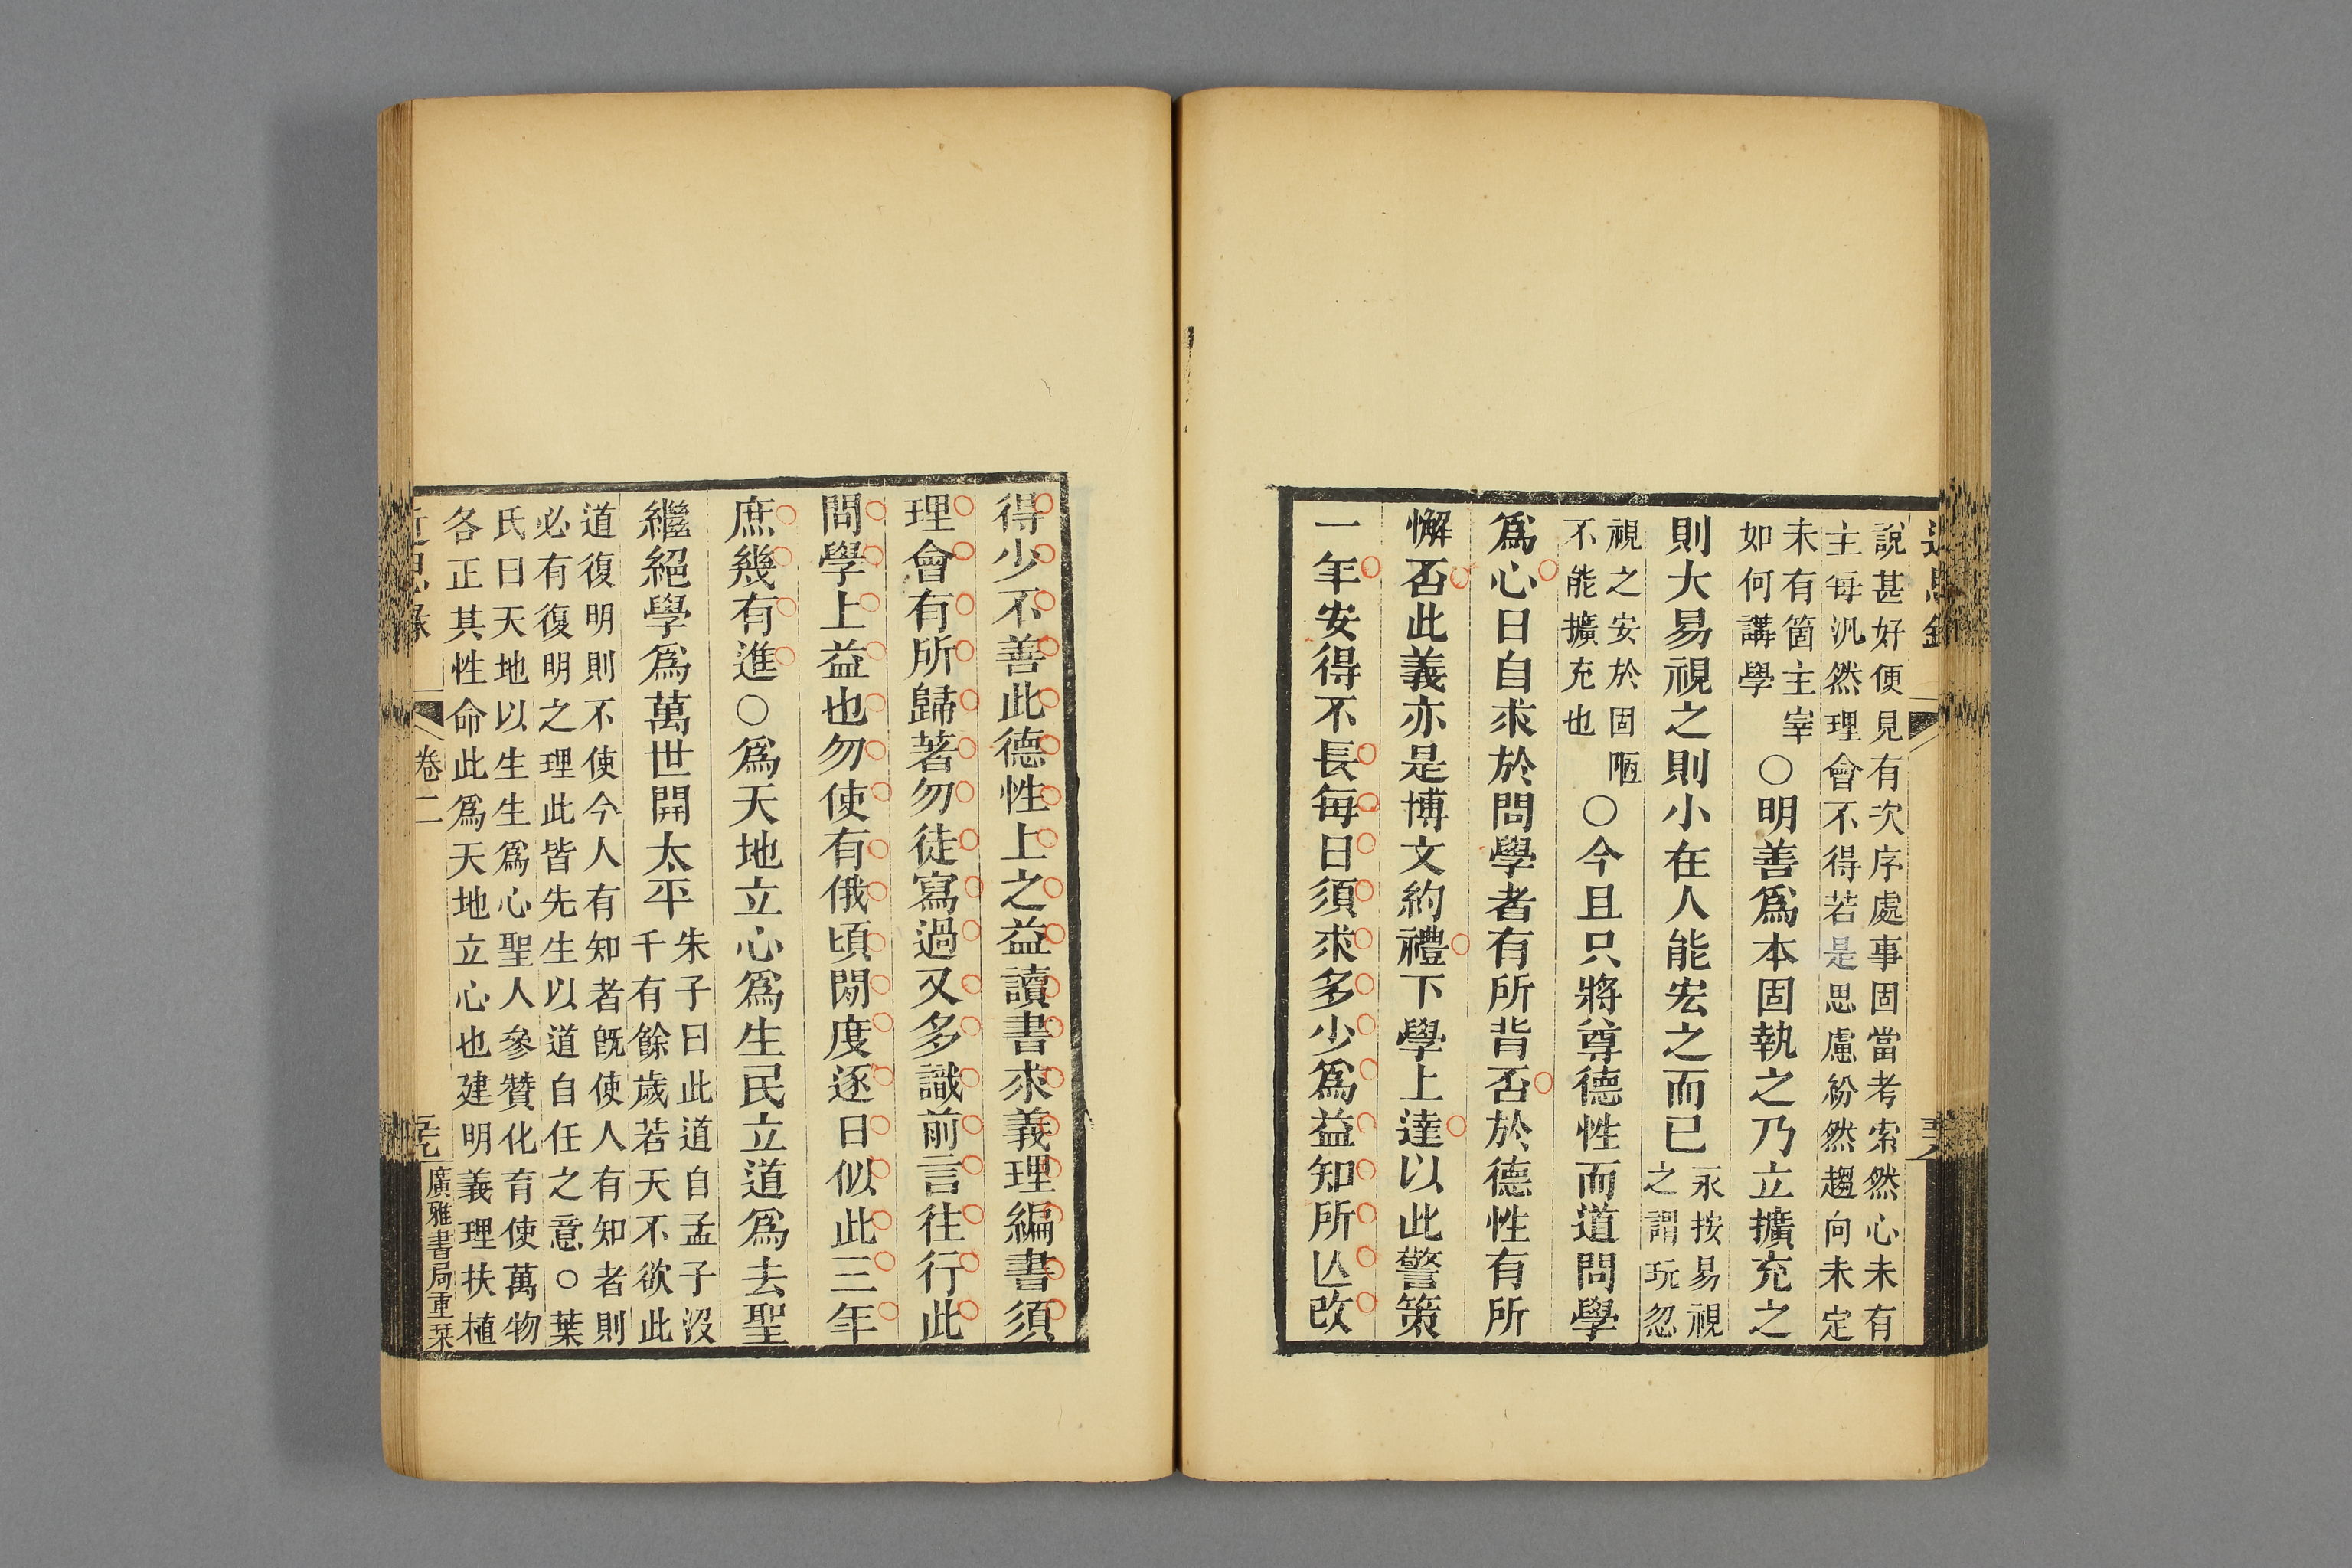 近思錄
說甚好便見有次序處事固當考索然心未有
主每汎然理會不得若是思慮紛然趨向未定
未有箇主宰
如何講學
○明善爲本固執之乃立擴充之
則大易視之則小在人能宏之而已
永按易視
之謂玩忽
視之安於固陋
不能擴充也
○今且只將尊德性而道問學
爲心日自求於問學者有所背否於德性有所
懈否此義亦是博文約禮下學上達以此警策
一年安得不長每日須求多少爲益知所亾改
得少不善此德性上之益讀書求義理編書須
理會有所歸著勿徒寫過又多識前言往行此
問學上益也勿使有俄頃閒度逐日似此三年
庶幾有進○爲天地立心爲生民立道爲去聖
繼絕學爲萬世開太平
朱子曰此道自孟子沒
千有餘歲若天不欲此
道復明則不使今人有知者旣使人有知者則
必有復明之理此皆先生以道自任之意○葉
氏曰天地以生生爲心聖人參贊化育使萬物
各正其性命此爲天地立心也建明義理扶植
近思錄
卷二
廣雅書局重栞